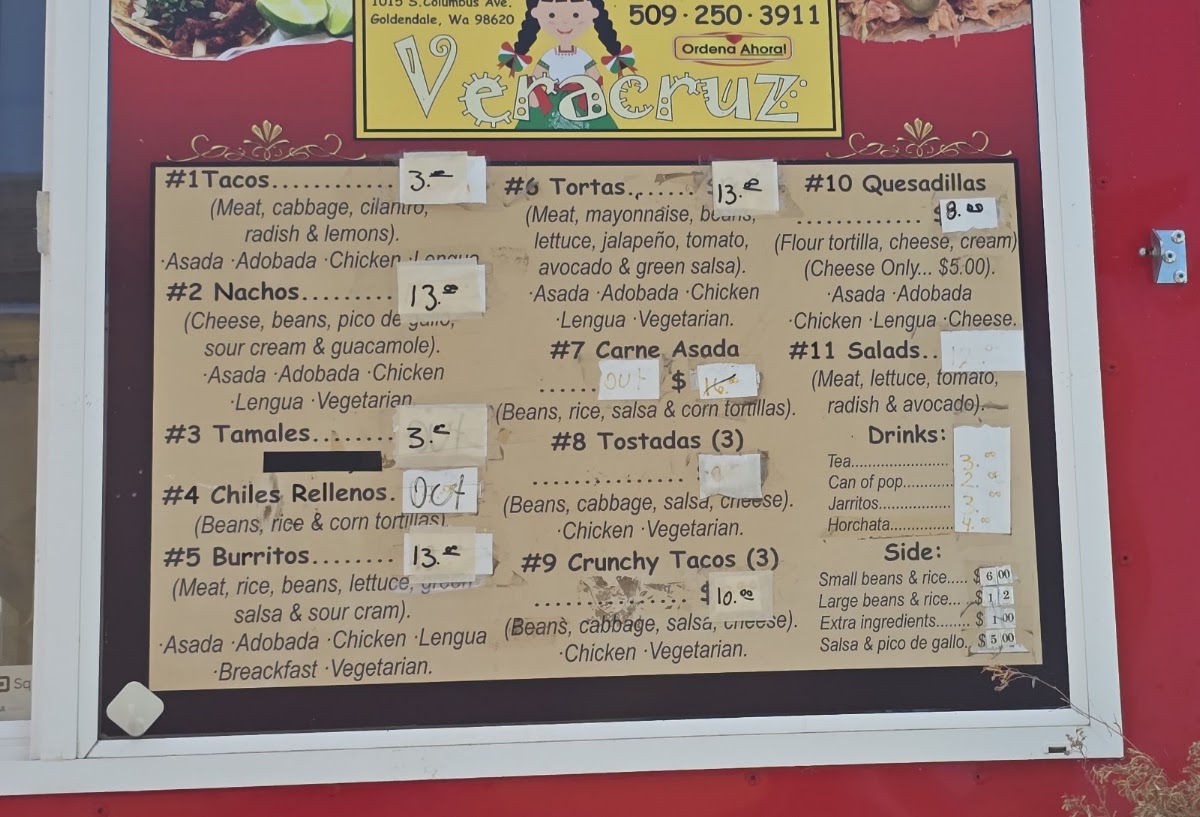 1015 S.Columbus Ave.
Goldendale, Wa 98620
509·250·3911
Ordena Ahora!
Veracruz
#1Tacos............ 3.00
(Meat, cabbage, cilantro,
radish & lemons).
·Asada ·Adobada ·Chicken ·Lengua
#2 Nachos......... 13.00
(Cheese, beans, pico de gallo,
sour cream & guacamole).
·Asada ·Adobada ·Chicken
·Lengua ·Vegetarian.
#3 Tamales........ 3.00
#4 Chiles Rellenos. OUt
(Beans, rice & corn tortillas)
#5 Burritos........ 13.00
(Meat, rice, beans, lettuce, green
salsa & sour cram).
·Asada ·Adobada ·Chicken ·Lengua
·Breackfast ·Vegetarian.
#6 Tortas........ 13.00
(Meat, mayonnaise, beans,
lettuce, jalapeño, tomato,
avocado & green salsa).
·Asada ·Adobada ·Chicken
·Lengua ·Vegetarian.
#7 Carne Asada
...... OUt $ 16.00
(Beans, rice, salsa & corn tortillas).
#8 Tostadas (3)
................
(Beans, cabbage, salsa, cheese).
·Chicken ·Vegetarian.
#9 Crunchy Tacos (3)
................ $ 10.00
(Beans, cabbage, salsa, cheese).
·Chicken ·Vegetarian.
#10 Quesadillas
............. $ 8.00
(Flour tortilla, cheese, cream)
(Cheese Only... $5.00).
·Asada ·Adobada
·Chicken ·Lengua ·Cheese.
#11 Salads..
(Meat, lettuce, tomato,
radish & avocado).
Drinks:
Tea....................... 3.00
Can of pop............ 2.00
Jarritos................. 3.00
Horchata.............. 4.00
Side:
Small beans & rice..... $ 6 00
Large beans & rice... $ 1 2
Extra ingredients........ $ 1 00
Salsa & pico de gallo. $ 5 00
Sq